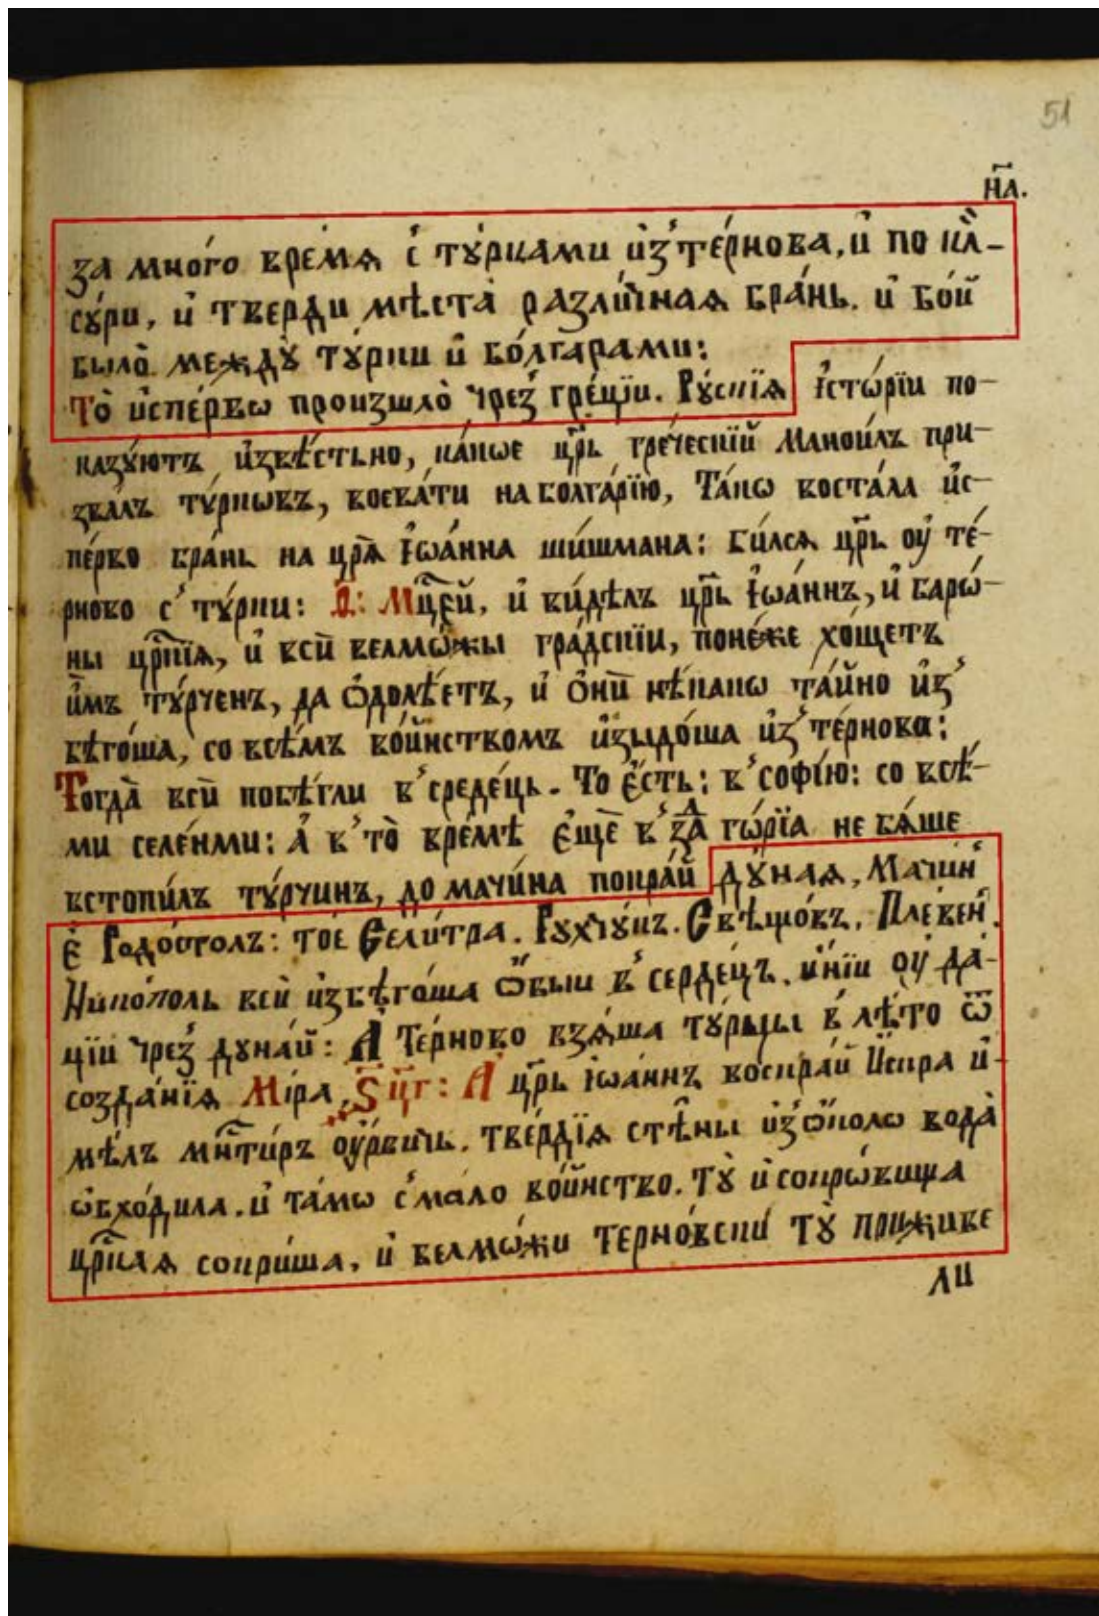 51
н҃а.
за мно́го вре́мѧ с̾ ту́рками и҆з̾те́рнова, и҆ по кл҄-
су́ри, и҆ тверди мѣ́ста̀ разли́чнаѧ бра́нь. и҆ бо́й
было̀ междꙋ̀ тꙋ́рки и҆ бо́лгарами:
То̀ и҆спе́рвѡ произшло̀ чрез̾ гре́цїи. Рꙋ́скїѧ і҆сто́рїи по-
казꙋ́ютъ и҆звѣ́стьно, ка́кѡе цр҃ь гре́ческїй Манои́лъ при-
зва́лъ тꙋ́ркѡвъ, воева́ти на болга́рїю, Та́кѡ воста́ла и҆с-
пе́рво бра́нь на цр҃ѧ̀ і҆ѡа́нна ши́шмана: би́лсѧ цр҃ь ѹ҆ те́-
рново с̾ тꙋ́рки: в҃: Мц҃ей, и҆ ви́дѣлъ цр҃ь і҆ѡа́ннъ, и҆ барѡ́-
ны цр҃кїѧ, и҆ вси̑ велмѡ́жы гра́дскїи, поне́же хо́щетъ
и҆̀мъ тꙋ́рченъ, да ѡ҆долѣ́етъ, и҆ ѻ҆ни̑ нѣ́какѡ та́йно и҆з̾
бѣго́ша, со всѣ́мъ во́инствомъ и҆зыдо́ша и҆з̾те́рнова:
Тогда̀ вси̑ побѣ́гли в̾среде́ць. То є҆́сть: в̾софі́ю: со всѣ́-
ми селе́нми: А҆ в̾то̀ вре́мѣ є҆щѐ в̾заⷣ гѡ́рїа не бѧ́ше
встопи́лъ тꙋ́рчинъ, до мачи́на покра́й дꙋ́наѧ, Мачин̾
є҆ Родо́столъ: то́е Сели́тра. Рꙋхчꙋ́къ. Свѣщѡ́въ. Пле́вен̾.
Нико́поль вси̑ и҆збѣго́ша ѡ҆́выи в̾ серде́цъ. и҆́нїи ѹ҆ да́-
кїи чрез̾ дꙋна́й: А҆ Те́рново взѧ́ша тꙋ́рьцы в̾ лѣ́то ѿ
созда́нїѧ Мі́ра, ҂ѕ҃ц҃г: А҆ цр҃ь і҆ѡа́ннъ воскра́й И҆́скра и҆-
мѣ́лъ мн҃ти́ръ ѹ҆́рвичь. тве́рдїѧ стѣ́ны и҆з̾ѡ҆́коло вода̀
ѡ҆бхо́дила. и҆ та́мѡ с̾ма́ло во́йнство. Тꙋ̀ и҆ сокрѡ́вища
цр҃каѧ сокри́ша, и҆ велмѡ́жи терно́вски тꙋ̀ приживе
ли